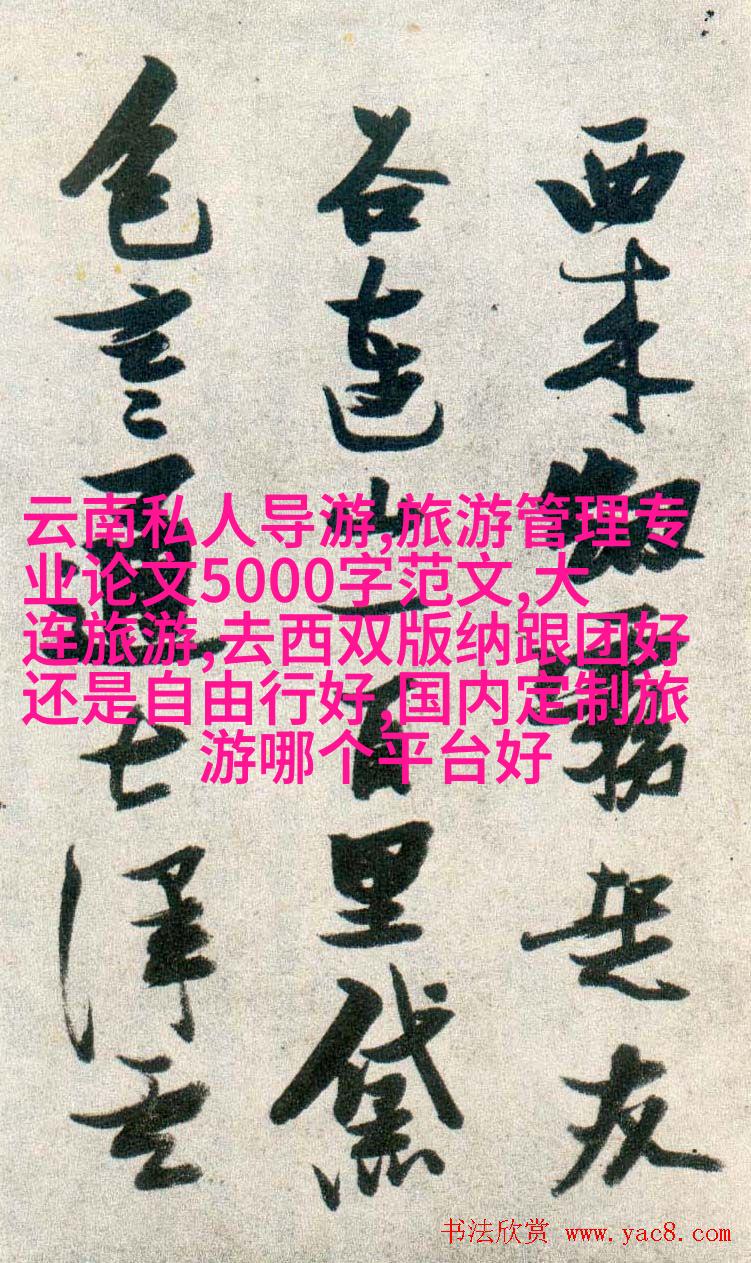 西
谷連山一百里黛
色七澤
云南私人导游,旅游管理专
业论文5000字范文,大
连旅游,去西双版纳跟团好
还是自由行好,国内定制旅
游哪个平台好
书法欣赏 www.yac8.com